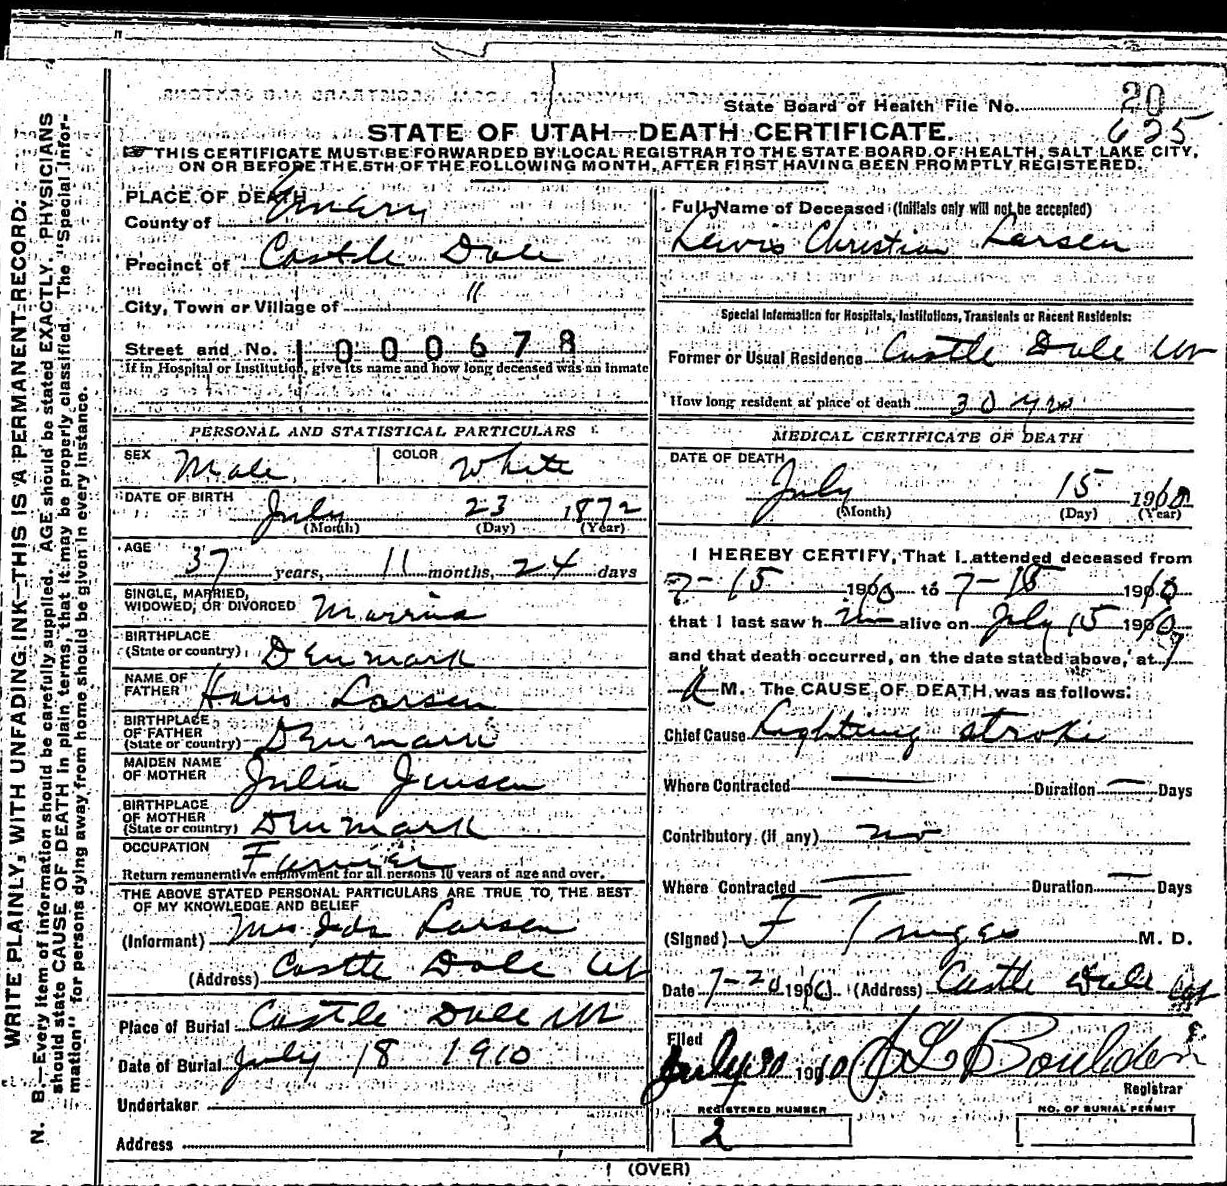 State Board of Health File No. 20
625
STATE OF UTAH—DEATH CERTIFICATE.
THIS CERTIFICATE MUST BE FORWARDED BY LOCAL REGISTRAR TO THE STATE BOARD OF HEALTH, SALT LAKE CITY,
ON OR BEFORE THE 5TH OF THE FOLLOWING MONTH, AFTER FIRST HAVING BEEN PROMPTLY REGISTERED.
WRITE PLAINLY, WITH UNFADING INK—THIS IS A PERMANENT RECORD.
N. B.—Every item of information should be carefully supplied. AGE should be stated EXACTLY. PHYSICIANS
should state CAUSE OF DEATH in plain terms, that it may be properly classified. The "Special Infor-
mation" for persons dying away from home should be given in every instance.
PLACE OF DEATH
County of Emery
Precinct of Castle Dale
City, Town or Village of "
Street and No. 1000678
If in Hospital or Institution, give its name and how long deceased was an inmate
PERSONAL AND STATISTICAL PARTICULARS
SEX Male COLOR White
DATE OF BIRTH July 23 1872
(Month) (Day) (Year)
AGE 37 years, 11 months, 24 days
SINGLE, MARRIED,
WIDOWED, OR DIVORCED Married
BIRTHPLACE
(State or country) Denmark
NAME OF
FATHER Hans Larsen
BIRTHPLACE
OF FATHER
(State or country) Denmark
MAIDEN NAME
OF MOTHER Julia Jensen
BIRTHPLACE
OF MOTHER
(State or country) Denmark
OCCUPATION Farmer
Return remunerative employment for all persons 10 years of age and over.
THE ABOVE STATED PERSONAL PARTICULARS ARE TRUE TO THE BEST
OF MY KNOWLEDGE AND BELIEF
(Informant) Mrs Ida Larsen
(Address) Castle Dale Ut
Place of Burial Castle Dale Ut
Date of Burial July 18 1910
Undertaker
Address
Full Name of Deceased (Initials only will not be accepted)
Lewis Christian Larsen
Special Information for Hospitals, Institutions, Transients or Recent Residents:
Former or Usual Residence Castle Dale Ut
How long resident at place of death 30 yrs
MEDICAL CERTIFICATE OF DEATH
DATE OF DEATH
July 15 1910
(Month) (Day) (Year)
I HEREBY CERTIFY, That I attended deceased from
7-15 1910 to 7-15 1910
that I last saw h im alive on July 15 1910
and that death occurred, on the date stated above, at 7
A M. The CAUSE OF DEATH was as follows:
Chief Cause Lighting stroke
Where Contracted — Duration — Days
Contributory (if any) no
Where Contracted — Duration — Days
(Signed) F M. D.
Date 7-20 1910 (Address) Castle Dale Ut
Filed
July 30 1910 Boulden
Registrar
REGISTERED NUMBER
2
NO. OF BURIAL PERMIT
(OVER)